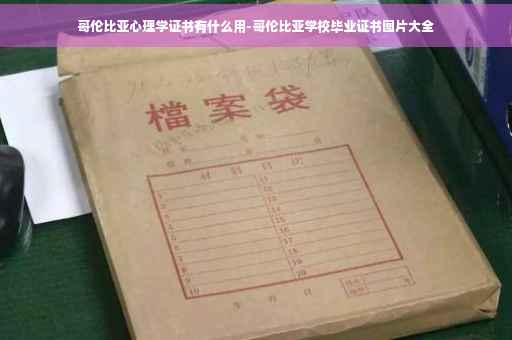 哥伦比亚心理学证书有什么用-哥伦比亚学校毕业证书图片大全
檔案袋
材料目次
1 11
2 12
3 13
4 14
5 15
6 16
7 17
8 18
9 19
10 20
年 月 日